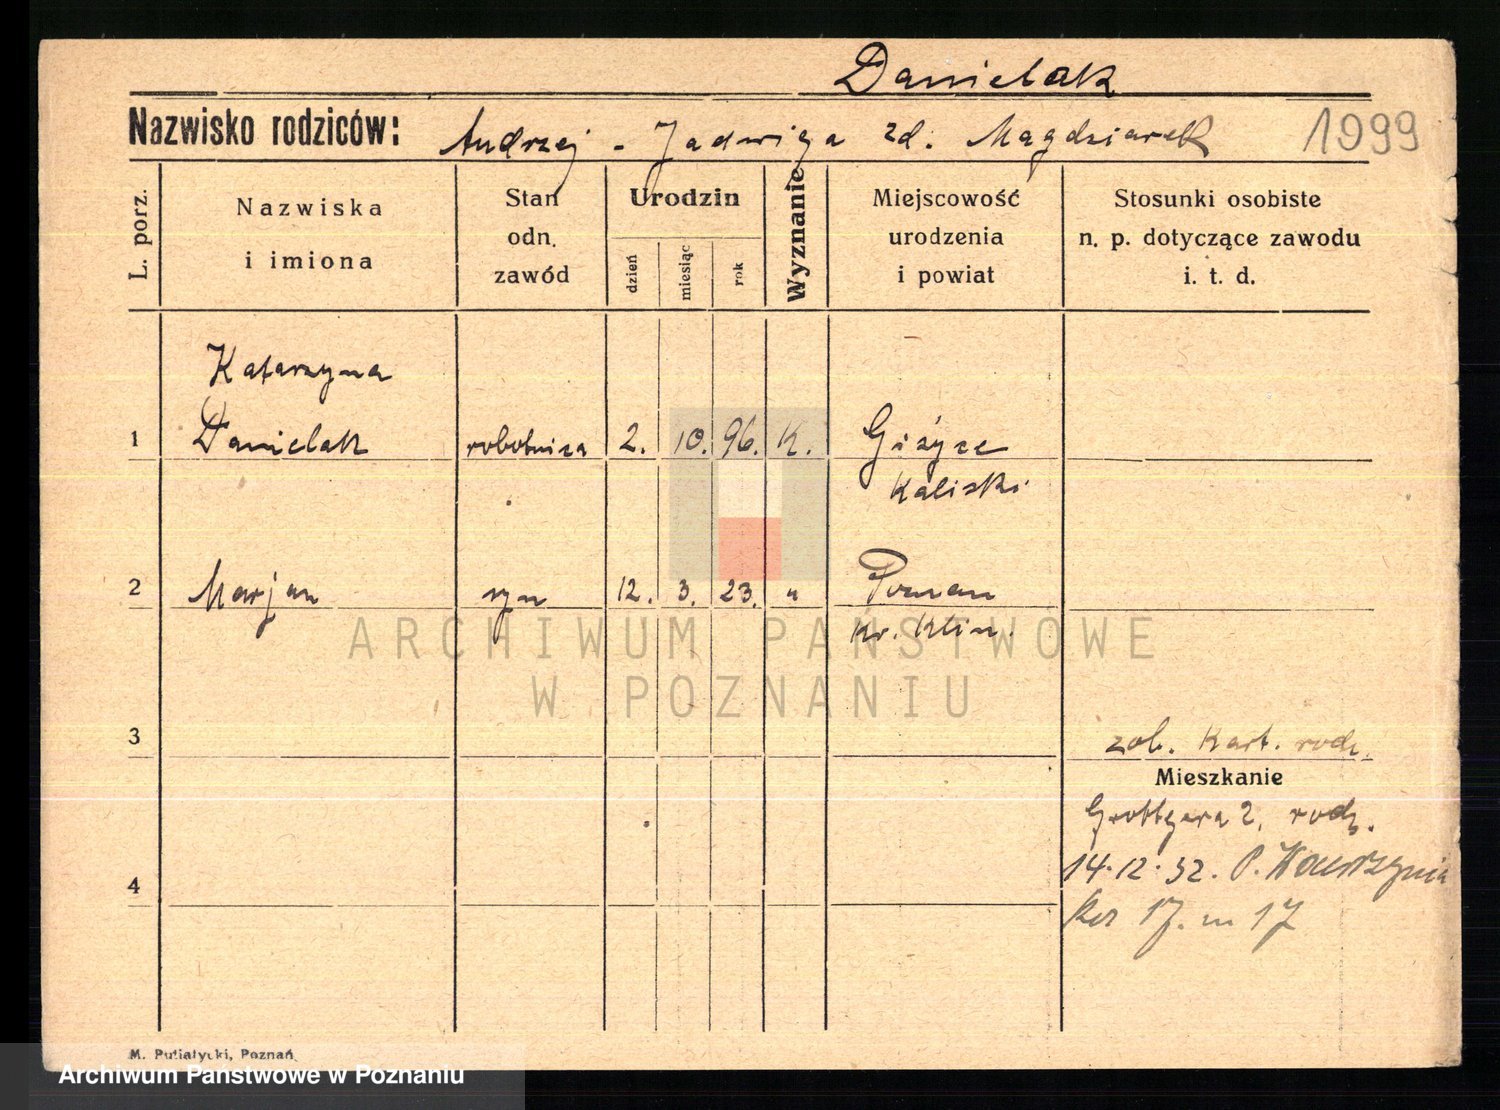 Danielak
Nazwisko rodziców: Andrzej - Jadwiga zd. Magdziarek 1999
L. porz.
Nazwiska
i imiona
Stan
odn.
zawód
Urodzin
dzień
miesiąc
rok
Wyznanie
Miejscowość
urodzenia
i powiat
Stosunki osobiste
n. p. dotyczące zawodu
i. t. d.
Katarzyna
1 Danielak robotnica 2. 10. 96. K. Giżyce
Kaliski
2 Marjan syn 12. 3. 23. " Poznan
kr. Klin.
ARCHIWUM PAŃSTWOWE
W POZNANIU
3
zob. Kart. rodz.
Mieszkanie
Grottgera 2. rodz.
14.12.32. P. Wawrzynia
4
17. m 17
M. Putiatycki, Poznań
Archiwum Państwowe w Poznaniu